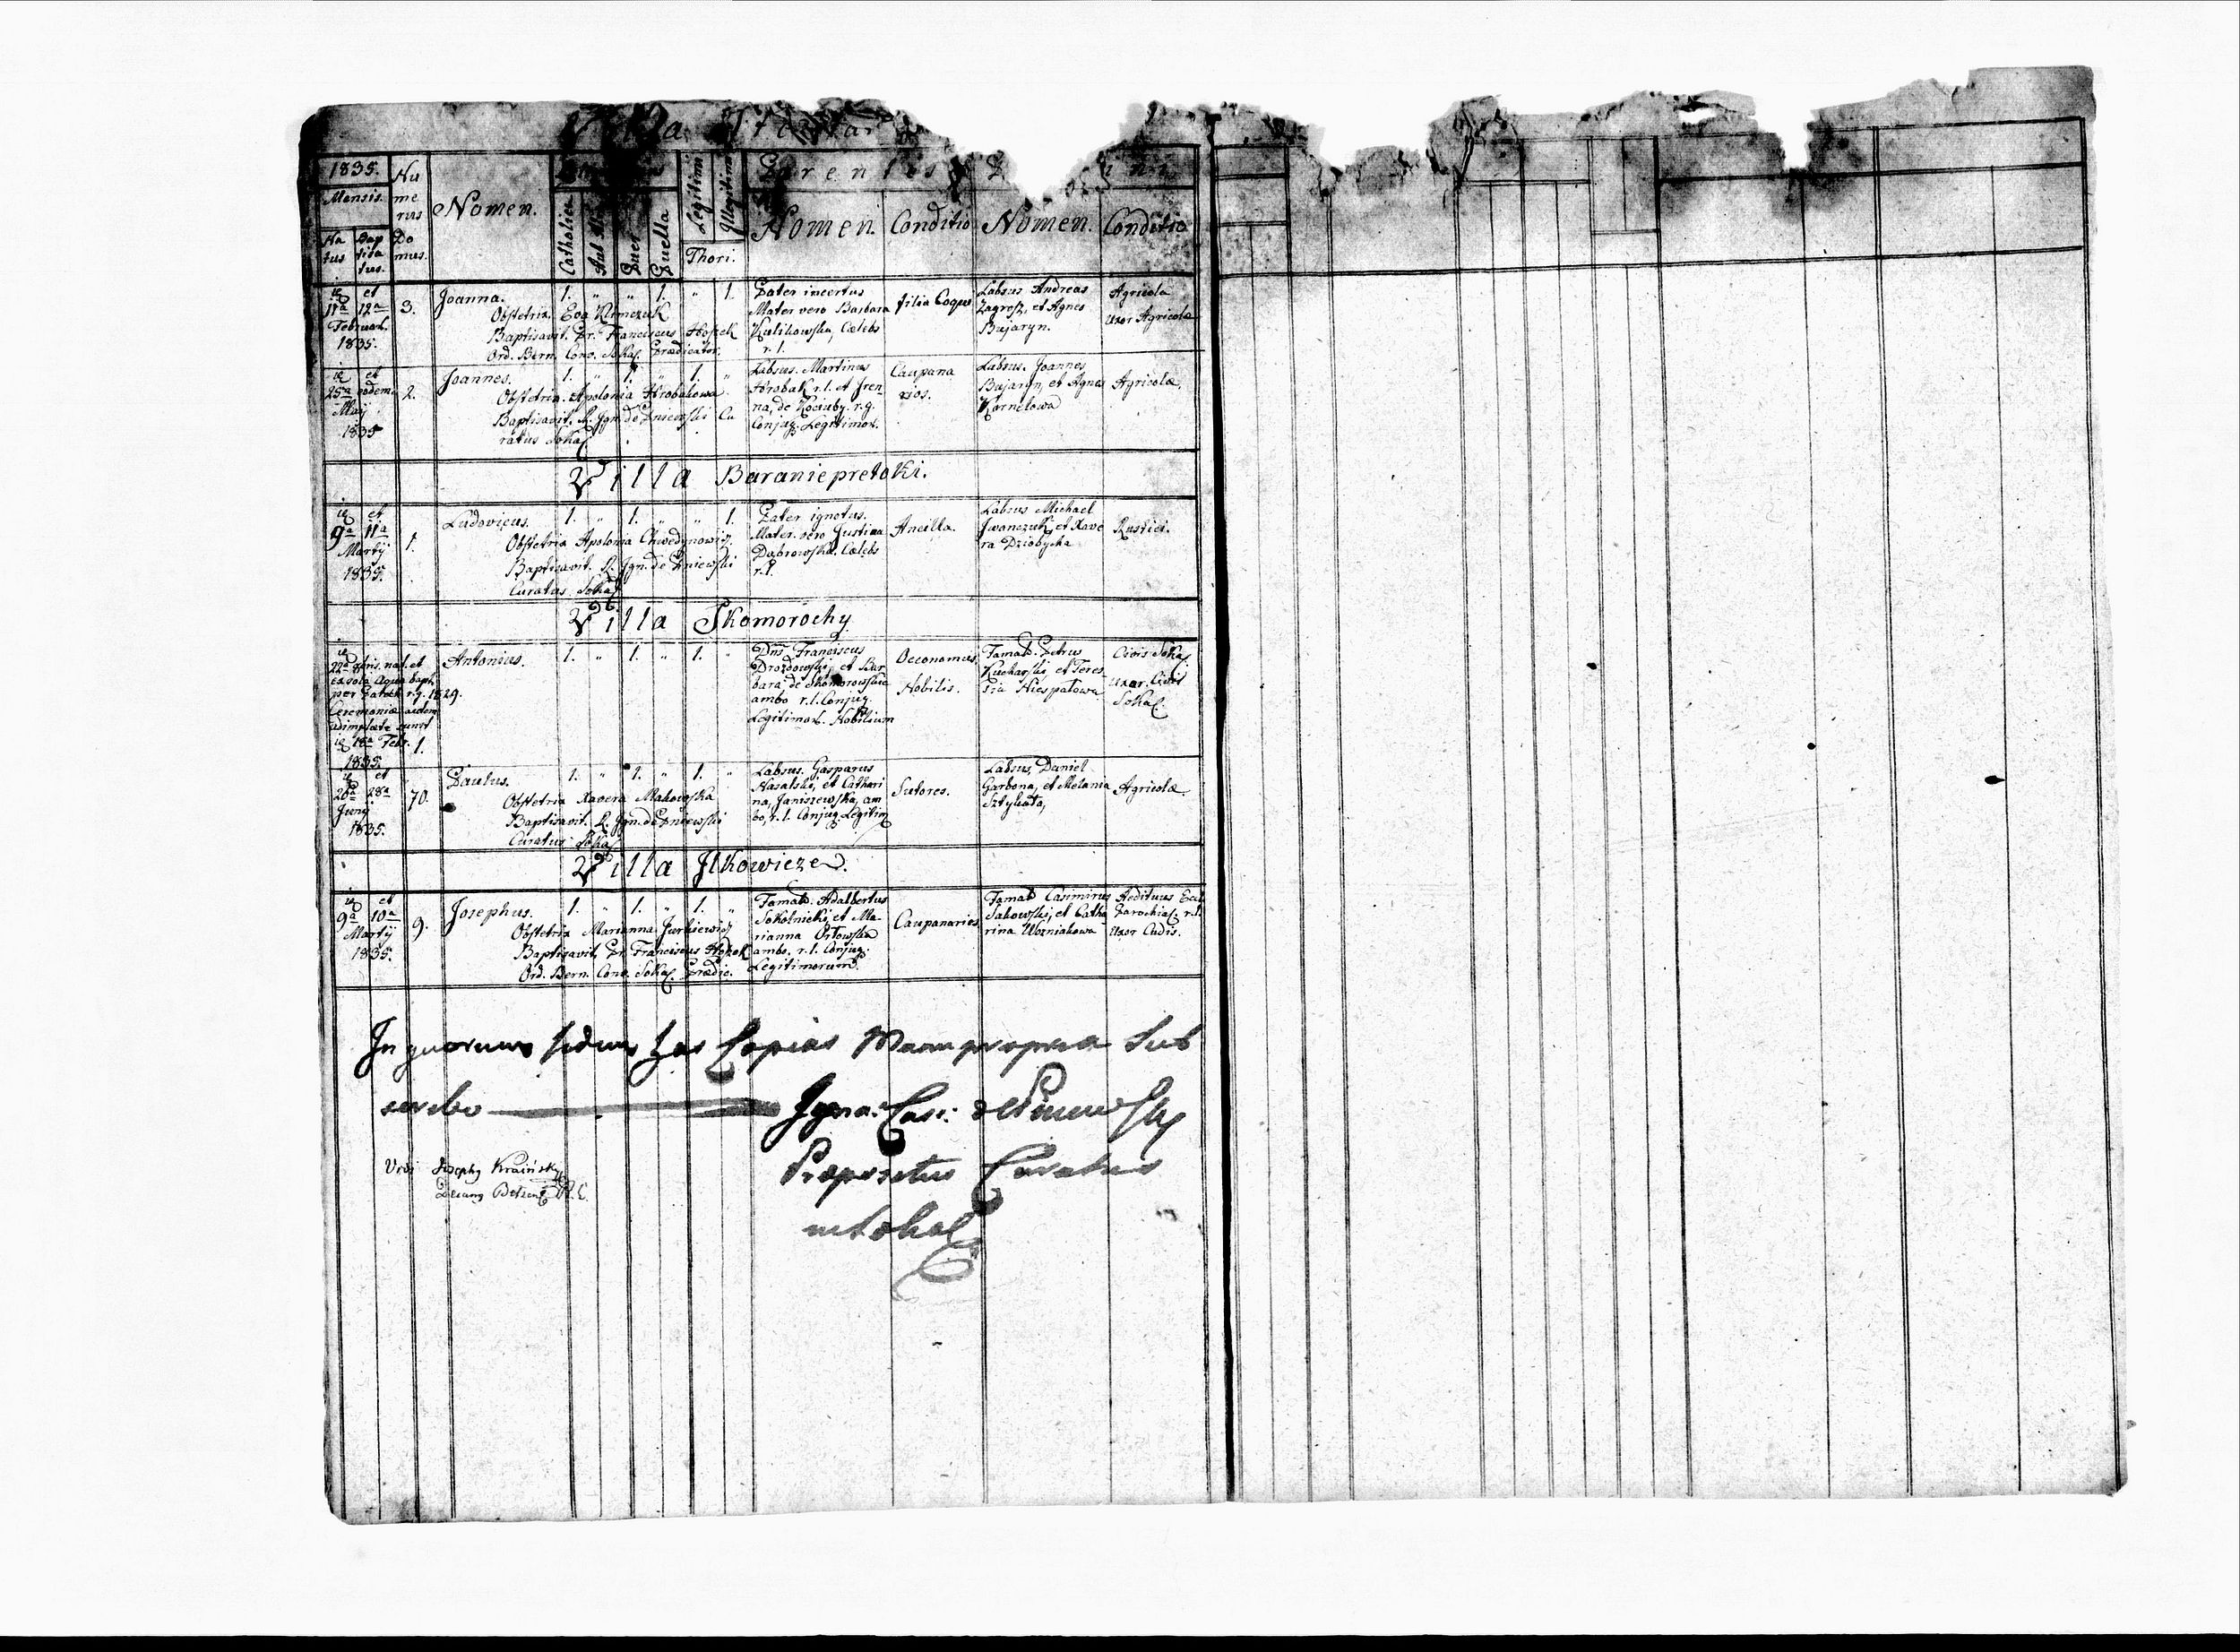 1835. Nu me rus Do mus. Nomen. Legitimi Illegitimi Parentes
Mensis. Catholica Puer Puella Thori. Nomen. Conditio Nomen. Conditio
Na tus Bap tisa tus.
Villa
ie et
11a 12a
Februar.
1835.
3.
Joanna. 1. " " 1. " 1.
Obstetrix. Eva Klimczuk
Baptisavit. Pr. Franciscus Hoszek
Ord. Bern. Conv. Sokal. Prædicator.
Pater incertus
Mater vero Barbara
Kulikowska, Cælebs
r. l.
filia Coqui
Labsus Andreas
Zagrosz, et Agnes
Bujaryn.
Agricola
Uxor Agricolæ
ie et
25a eodem
Maij
1835
2.
Joannes. 1. " 1. " 1. "
Obstetrix. Apolonia Hrobakowa
Baptisavit. R. Ign. de Pniewski Cu
ratus Sokal
Labsus. Martinus
Hrobak r. l. et Iren
na, de Kociuby. r. g.
Conjug. Legitimor.
Caupana
rios.
Labsus. Joannes
Bujaryn, et Agnes
Kornelowa
Agricolæ.
Villa Baraniepretoki.
ie et
9a 11a
Martij
1835.
1.
Ludovicus. 1. " 1. " " 1.
Obstetrix Apolonia Chwedynowicz
Baptisavit. R. Ign. de Pniewski
Curatus Sokal
Pater ignotus.
Mater. vero Justina
Dąbrowska. Cælebs
r. l.
Ancilla.
Labsus Michael
Iwanczuk, et Xave
ra Dziobycha
Rustici.
Villa Skomorochy
ie
22a Xbris. nat. et
ex sola Aqua bapt.
per Paroch r. g. 1829.
Ceremoniæ autem
adimpletæ sunt
ie 18a Febr.
1835.
1.
Antonius. 1. " 1. " 1. "
Dns. Franciscus
Drozdowski, et Bar
bara, de Skomorowskie
ambo r. l. Conjug.
Legitimor. Nobilium
Oeconomus.
Nobilis.
Famat. Petrus
Kucharski, et Teres
sia Niespałowa
Civis Sokal
Uxor. Civis
Sokal.
ie et
26a 28a
Junij
1835.
70.
Paulus. 1. " 1. " 1. "
Obstetrix Xavera Makowska
Baptisavit. R. Ign. de Pniewski
Curatus Sokal
Labsus. Gasparus
Nasalski, et Cathari
na, Janiszewska, am
bo, r. l. Conjug. Legitim
Sutores.
Labsus. Daniel
Garbona, et Melania
Sztykała,
Agricolæ.
Villa Ilkowicze.
ie et
9a 10a
Martij
1835.
9.
Josephus. 1. " 1. " 1. "
Obstetrix Marianna Jurkiewicz
Baptisavit, Pr. Franciscus Hoszek
Ord. Bern. Conv. Sokal. Prædic.
Famat. Adalbertus
Sokolnicki, et Ma-
rianna Orłowska
ambo. r. l. Conjug.
Legitimorum.
Caupanarios
Famat Casimirus
Sakowski, et Catha
rina Wozniakowa
Aedituus Eccl
Parochial. r. l.
Uxor Cudis.
In quorum fidem has Copias Manu propria Sub
scribo Igna: Casi: de Pniewski
Præpositus Curatus
in Sokal
Vidi Josephg Kraiński
Decang Belzen